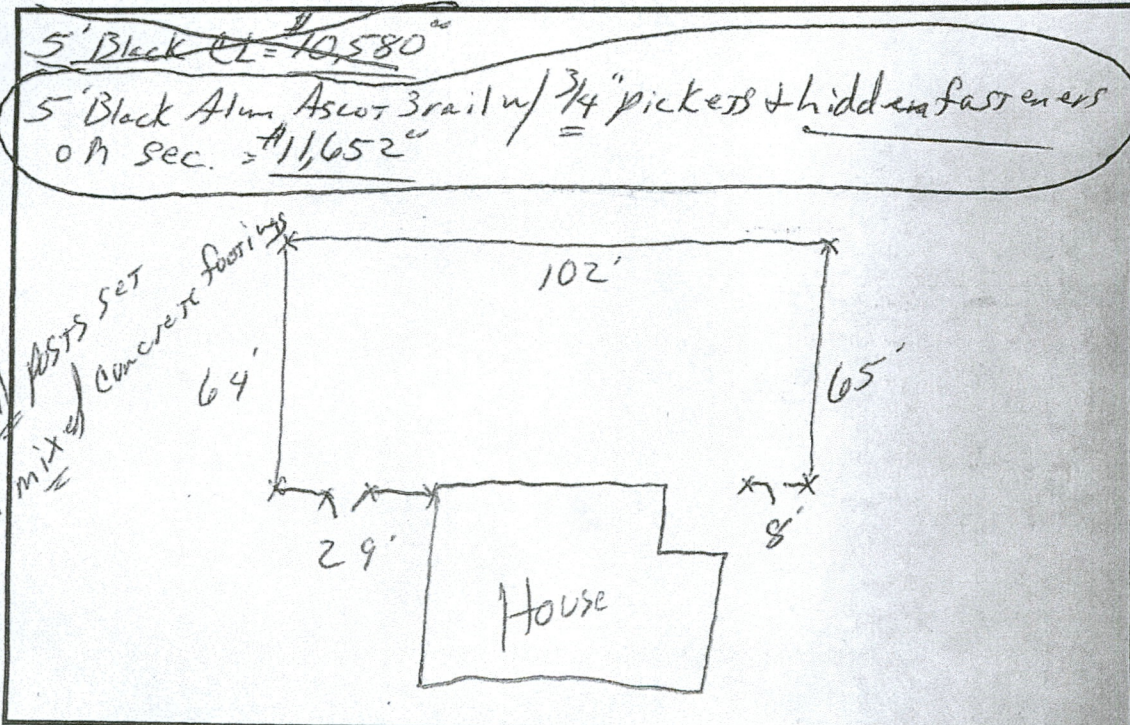 5' Black CL = $10,580°°
5' Black Alum Ascot 3rail w/ 3/4" pickets + hidden fasteners
on sec. = $11,652°°
posts set
mixed concrete footings
102'
64'
65'
29'
8'
House